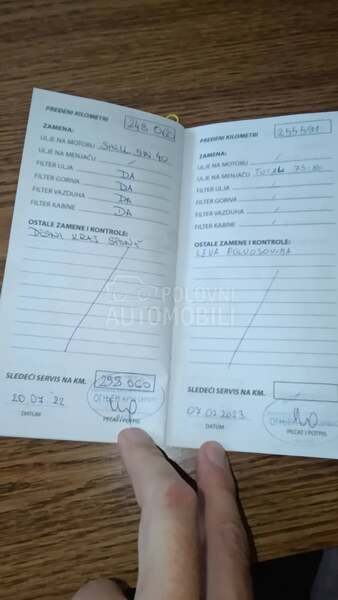 PREĐENI KILOMETRI 248 060
ZAMENA:
ULJE NA MOTORU SHELL 5W 40
ULJE NA MENJAČU /
FILTER ULJA DA
FILTER GORIVA DA
FILTER VAZDUHA DA
FILTER KABINE DA
OSTALE ZAMENE I KONTROLE:
DESNI KRAJ SPONE
SLEDEĆI SERVIS NA KM. 258 060
20 07 '22
DATUM
PEČAT I POTPIS
PREĐENI KILOMETRI 255591
ZAMENA:
ULJE NA MOTORU /
ULJE NA MENJAČU TOTAL 75
FILTER ULJA /
FILTER GORIVA /
FILTER VAZDUHA /
FILTER KABINE /
OSTALE ZAMENE I KONTROLE:
LEVA POLUOSOVINA
SLEDEĆI SERVIS NA KM.
07 02 2023
DATUM
PEČAT I POTPIS
POLOVNI
AUTOMOBILI